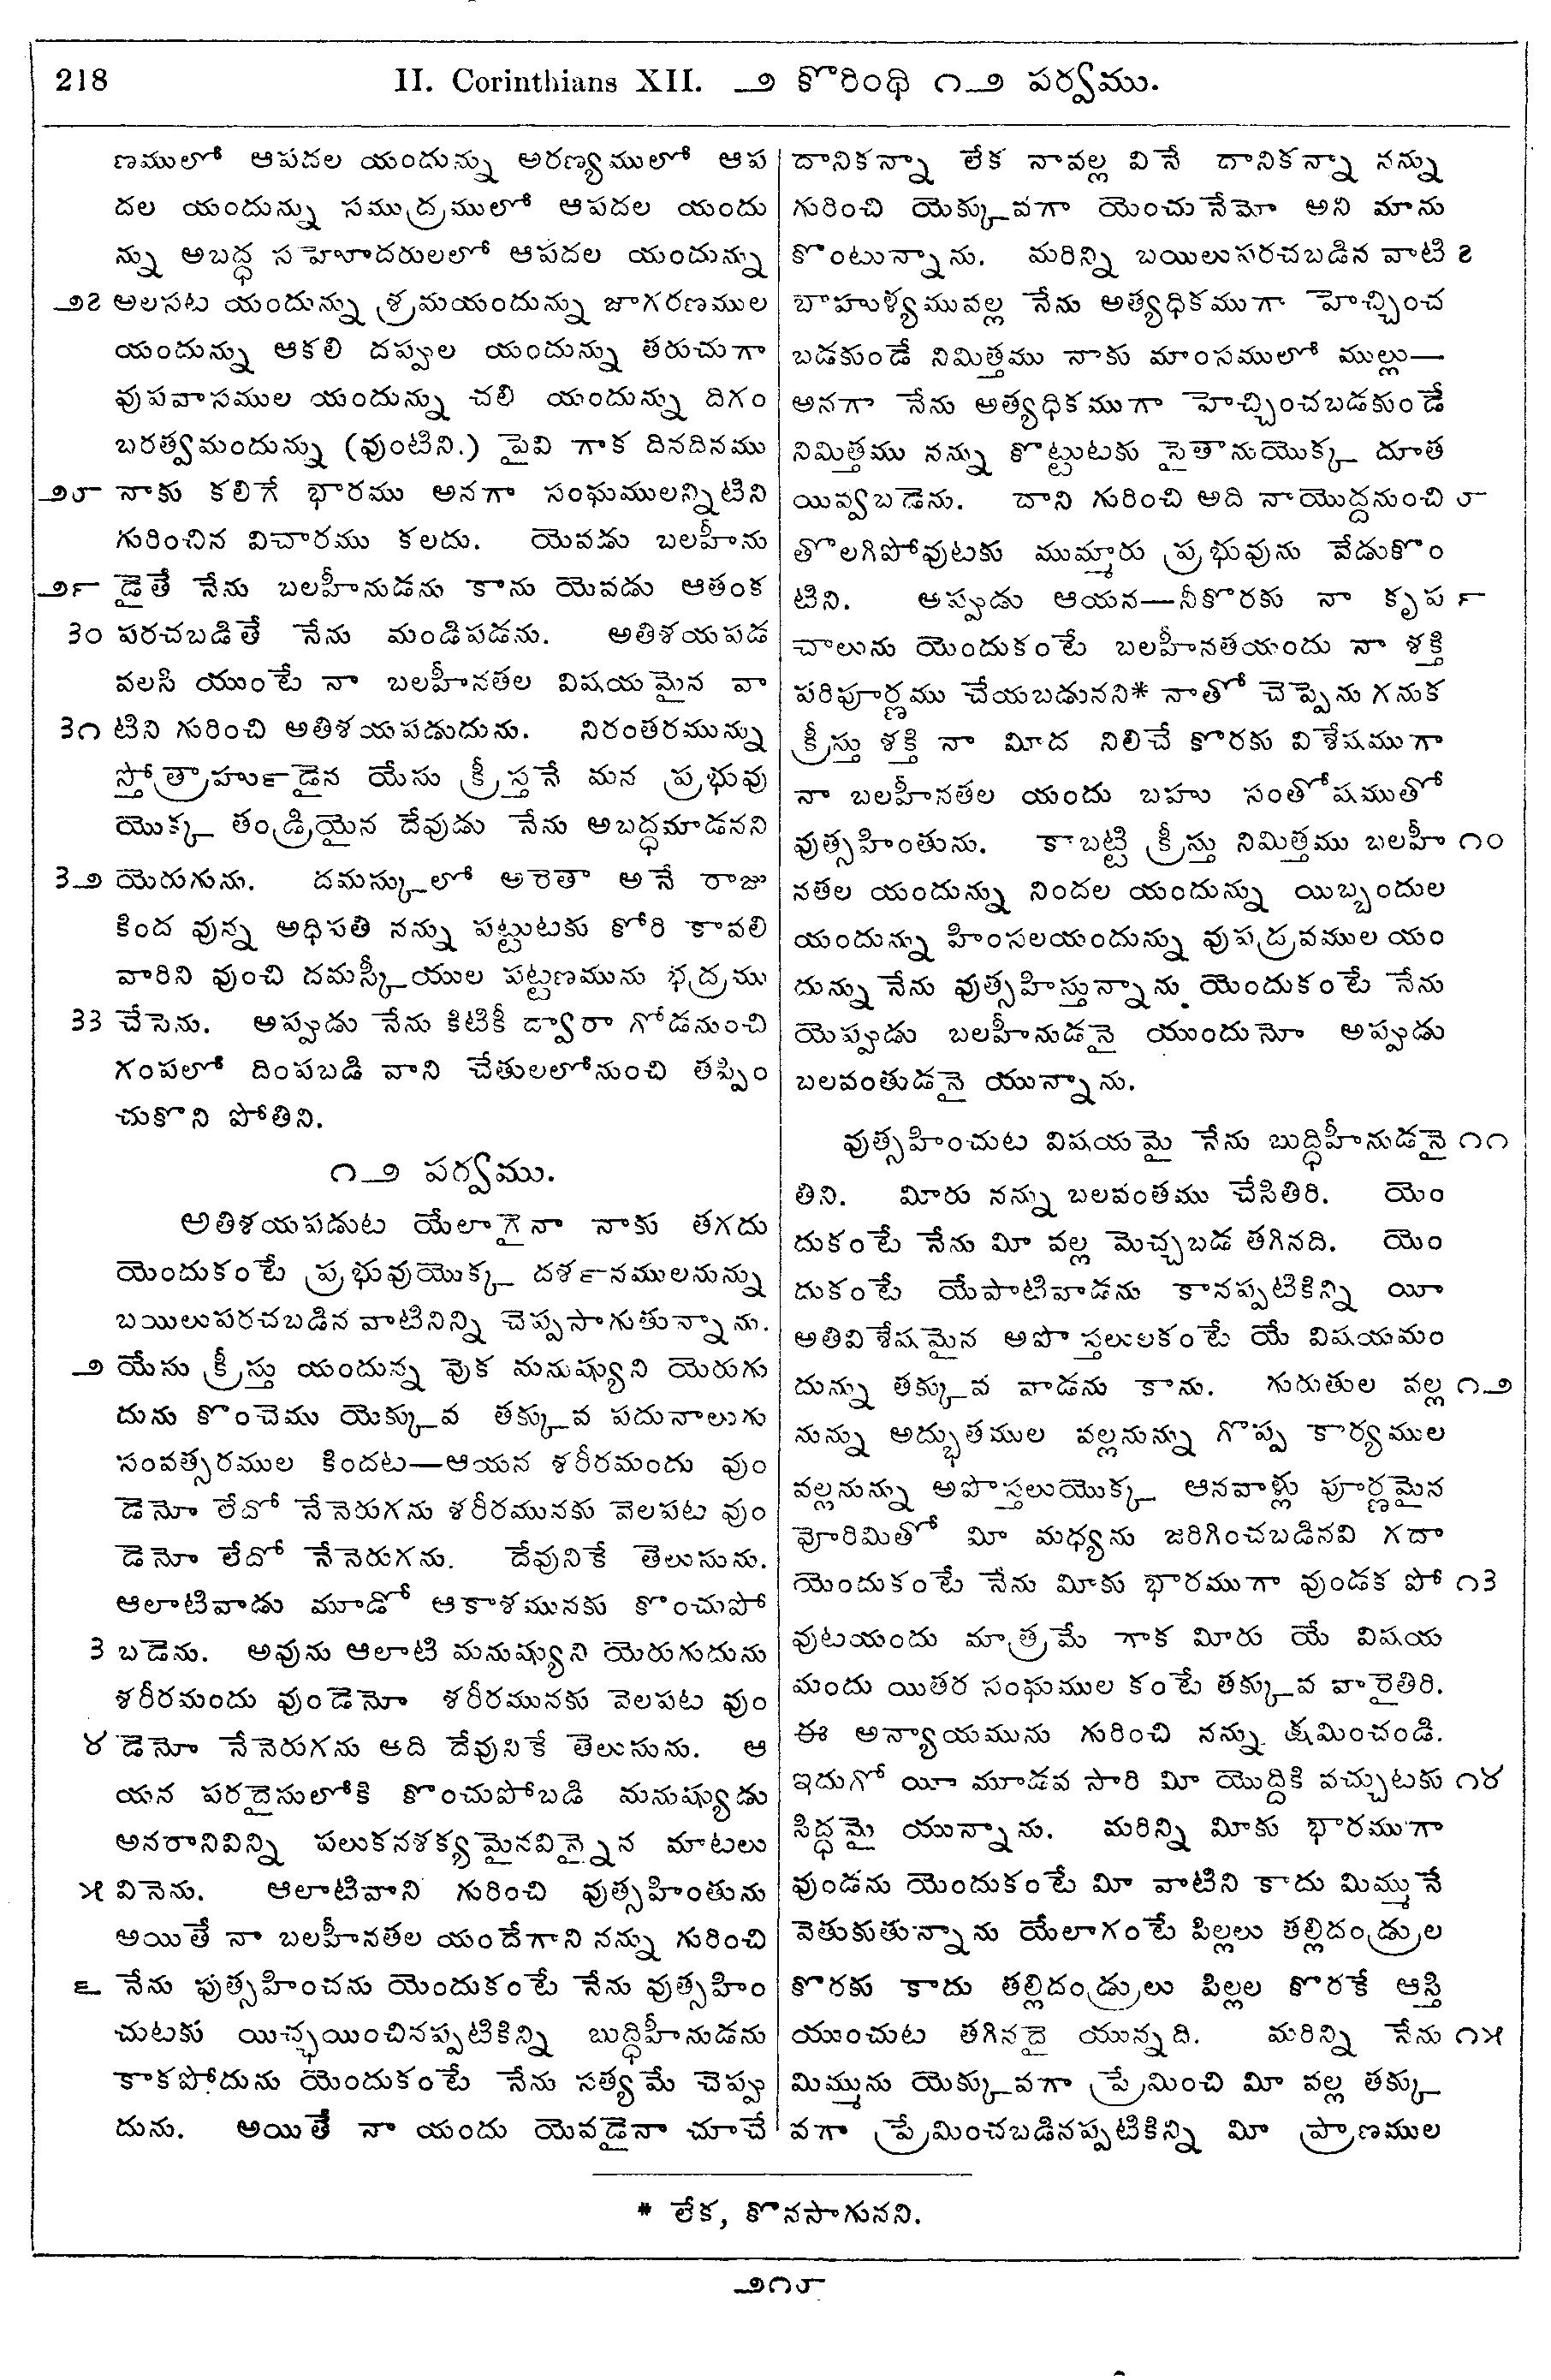 218 II. Corinthians XII. ౨ కొరింథి ౧౨ పర్వము.
ణములో ఆపదల యందున్ను అరణ్యములో ఆప
దల యందున్ను సముద్రములో ఆపదల యందు
న్ను అబద్ధ సహోదరులలో ఆపదల యందున్ను
౨౭ అలసట యందున్ను శ్రమయందున్ను జాగరణముల
యందున్ను ఆకలి దప్పుల యందున్ను తరుచుగా
వుపవాసముల యందున్ను చలి యందున్ను దిగం
బరత్వమందున్ను (వుంటిని.) పైవి గాక దినదినము
౨౮ నాకు కలిగే భారము అనగా సంఘములన్నిటిని
గురించిన విచారము కలదు. యెవడు బలహీను
౨౯ డైతే నేను బలహీనుడను కాను యెవడు ఆతంక
౩౦ పరచబడితే నేను మండిపడను. అతిశయపడ
వలసి యుంటే నా బలహీనతల విషయమైన వా
౩౧ టిని గురించి అతిశయపడుదును. నిరంతరమున్ను
స్తోత్రాహు౯డైన యేసు క్రీస్తనే మన ప్రభువు
యొక్క తండ్రియైన దేవుడు నేను అబద్ధమాడనని
౩౨ యెరుగును. దమస్కులో అరెతా అనే రాజు
కింద వున్న అధిపతి నన్ను పట్టుటకు కోరి కావలి
వారిని వుంచి దమస్కీయుల పట్టణమును భద్రము
౩౩ చేసెను. అప్పుడు నేను కిటికీ ద్వారా గోడనుంచి
గంపలో దింపబడి వాని చేతులలోనుంచి తప్పిం
చుకొని పోతిని.
౧౨ పర్వము.
అతిశయపడుట యేలాగైనా నాకు తగదు
యెందుకంటే ప్రభువుయొక్క దశ౯నములనున్ను
బయిలుపరచబడిన వాటినిన్ని చెప్పసాగుతున్నాను.
౨ యేసు క్రీస్తు యందున్న వొక మనుష్యుని యెరుగు
దును కొంచెము యెక్కువ తక్కువ పదునాలుగు
సంవత్సరముల కిందట—ఆయన శరీరమందు వుం
డెనో లేదో నేనెరుగను శరీరమునకు వెలపట వుం
డెనో లేదో నేనెరుగను. దేవునికే తెలుసును.
ఆలాటివాడు మూడో ఆకాశమునకు కొంచుపో
౩ బడెను. అవును ఆలాటి మనుష్యుని యెరుగుదును
శరీరమందు వుండెనో శరీరమునకు వెలపట వుం
౪ డెనో నేనెరుగను అది దేవునికే తెలుసును. ఆ
యన పరదైసులోకి కొంచుపోబడి మనుష్యుడు
అనరానివిన్ని పలుకనశక్యమైనవిన్నైన మాటలు
౫ వినెను. ఆలాటివాని గురించి వుత్సహింతును
అయితే నా బలహీనతల యందేగాని నన్ను గురించి
౬ నేను వుత్సహించను యెందుకంటే నేను వుత్సహిం
చుటకు యిచ్ఛయించినప్పటికిన్ని బుద్ధిహీనుడను
కాకపోదును యెందుకంటే నేను సత్యమే చెప్పు
దును. అయితే నా యందు యెవడైనా చూచే
దానికన్నా లేక నావల్ల వినే దానికన్నా నన్ను
గురించి యెక్కువగా యెంచునేమో అని మాను
కొంటున్నాను. మరిన్ని బయిలుపరచబడిన వాటి ౭
బాహుళ్యమువల్ల నేను అత్యధికముగా హెచ్చించ
బడకుండే నిమిత్తము నాకు మాంసములో ముల్లు—
అనగా నేను అత్యధికముగా హెచ్చించబడకుండే
నిమిత్తము నన్ను కొట్టుటకు సైతానుయొక్క దూత
యివ్వబడెను. దాని గురించి అది నాయొద్దనుంచి ౮
తొలగిపోవుటకు ముమ్మారు ప్రభువును వేడుకొం
టిని. అప్పుడు ఆయన—నీకొరకు నా కృప ౯
చాలును యెందుకంటే బలహీనతయందు నా శక్తి
పరిపూర్ణము చేయబడునని* నాతో చెప్పెను గనుక
క్రీస్తు శక్తి నా మీద నిలిచే కొరకు విశేషముగా
నా బలహీనతల యందు బహు సంతోషముతో
వుత్సహింతును. కాబట్టి క్రీస్తు నిమిత్తము బలహీ ౧౦
నతల యందున్ను నిందల యందున్ను యిబ్బందుల
యందున్ను హింసలయందున్ను వుపద్రవముల యం
దున్ను నేను వుత్సహిస్తున్నాను. యెందుకంటే నేను
యెప్పుడు బలహీనుడనై యుందునో అప్పుడు
బలవంతుడనై యున్నాను.
వుత్సహించుట విషయమై నేను బుద్ధిహీనుడనై ౧౧
తిని. మీరు నన్ను బలవంతము చేసితిరి. యెం
దుకంటే నేను మీ వల్ల మెచ్చబడ తగినది. యెం
దుకంటే యేపాటివాడను కానప్పటికిన్ని యీ
అతివిశేషమైన అపొస్తలులకంటే యే విషయమం
దున్ను తక్కువ వాడను కాను. గురుతుల వల్ల ౧౨
నున్ను అద్భుతముల వల్లనున్ను గొప్ప కార్యముల
వల్లనున్ను అపొస్తలుయొక్క ఆనవాళ్లు పూర్ణమైన
వోరిమితో మీ మధ్యను జరిగించబడినవి గదా
యెందుకంటే నేను మీకు భారముగా వుండక పో ౧౩
వుటయందు మాత్రమే గాక మీరు యే విషయ
మందు యితర సంఘముల కంటే తక్కువ వారైతిరి.
ఈ అన్యాయమును గురించి నన్ను క్షమించండి.
ఇదుగో యీ మూడవ సారి మీ యొద్దికి వచ్చుటకు ౧౪
సిద్ధమై యున్నాను. మరిన్ని మీకు భారముగా
వుండను యెందుకంటే మీ వాటిని కాదు మిమ్మునే
వెతుకుతున్నాను యేలాగంటే పిల్లలు తల్లిదండ్రుల
కొరకు కాదు తల్లిదండ్రులు పిల్లల కొరకే ఆస్తి
యుంచుట తగినదై యున్నది. మరిన్ని నేను ౧౫
మిమ్మును యెక్కువగా ప్రేమించి మీ వల్ల తక్కు
వగా ప్రేమించబడినప్పటికిన్ని మీ ప్రాణముల
* లేక, కొనసాగునని.
౨౧౮